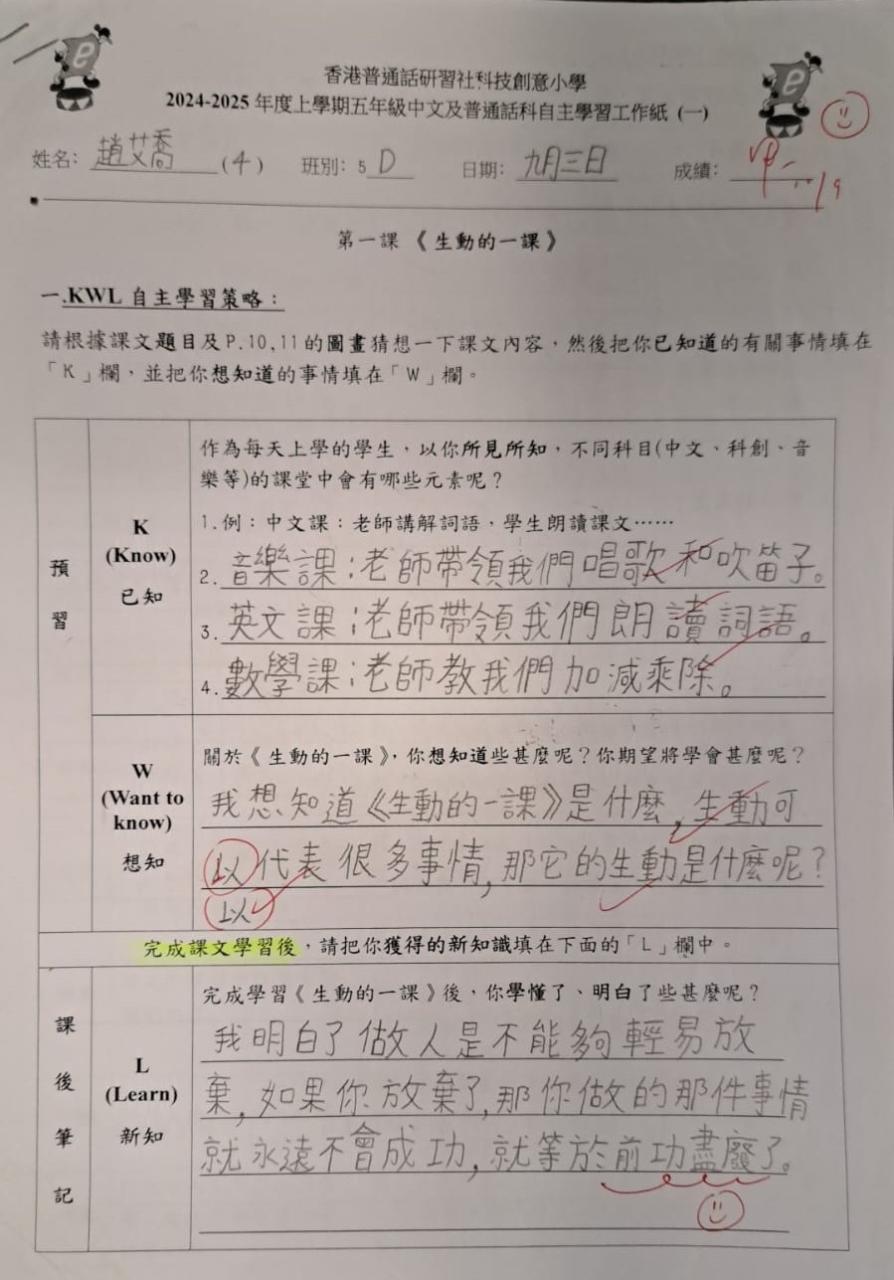 香港普通話研習社科技創意小學
2024-2025 年度上學期五年級中文及普通話科自主學習工作紙 (一)
姓名: 趙艾喬 (4) 班別: 5 D 日期: 九月三日 成績:
第一課《生動的一課》
一.KWL 自主學習策略:
請根據課文題目及P.10,11的圖畫猜想一下課文內容,然後把你已知道的有關事情填在
「K」欄,並把你想知道的事情填在「W」欄。
預習
K
(Know)
已知
作為每天上學的學生,以你所見所知,不同科目(中文、科創、音
樂等)的課堂中會有哪些元素呢?
1.例:中文課:老師講解詞語,學生朗讀課文……
2. 音樂課:老師帶領我們唱歌和吹笛子。
3. 英文課:老師帶領我們朗讀詞語。
4. 數學課:老師教我們加減乘除。
W
(Want to
know)
想知
關於《生動的一課》,你想知道些甚麼呢?你期望將學會甚麼呢?
我想知道《生動的一課》是什麼,生動可
以代表很多事情,那它的生動是什麼呢?
以
完成課文學習後,請把你獲得的新知識填在下面的「L」欄中。
課後筆記
L
(Learn)
新知
完成學習《生動的一課》後,你學懂了、明白了些甚麼呢?
我明白了做人是不能夠輕易放
棄,如果你放棄了,那你做的那件事情
就永遠不會成功,就等於前功盡廢了。